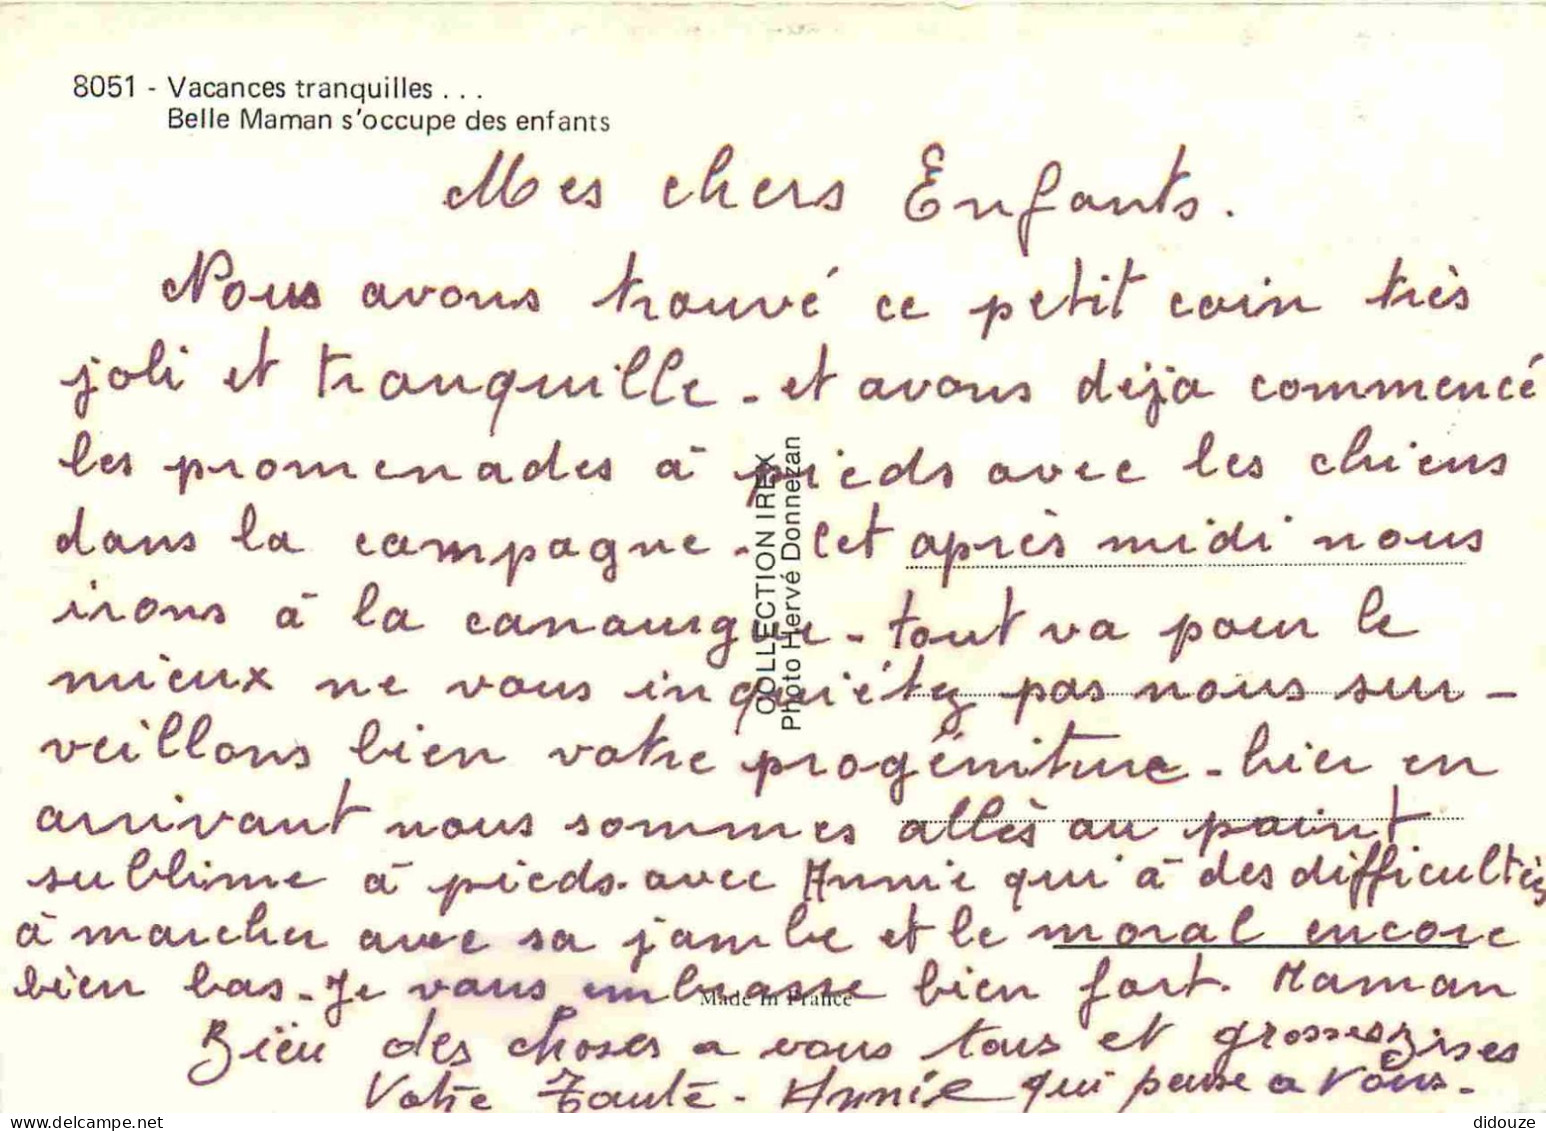 8051 - Vacances tranquilles . . .
Belle Maman s'occupe des enfants
Mes chers Enfants.
Nous avons trouvé ce petit coin très
joli et tranquille - et avons déja commencé
les promenades à pieds avec les chiens
dans la campagne - Cet après midi nous
irons à la canourgue - tout va pour le
mieux ne vous inquiétez pas nous sur-
veillons bien votre progéniture - hier en
arrivant nous sommes allès au point
sublime à pieds - avec Annie qui à des difficultès
à marcher avec sa jambe et le moral encore
bien bas - Je vous embrasse bien fort. Maman
Bien des choses a vous tous et grosses bises
Votre Tante - Annie qui pense a vous -
COLLECTION IREX
Photo Hervé Donnezan
Made in France
didouze